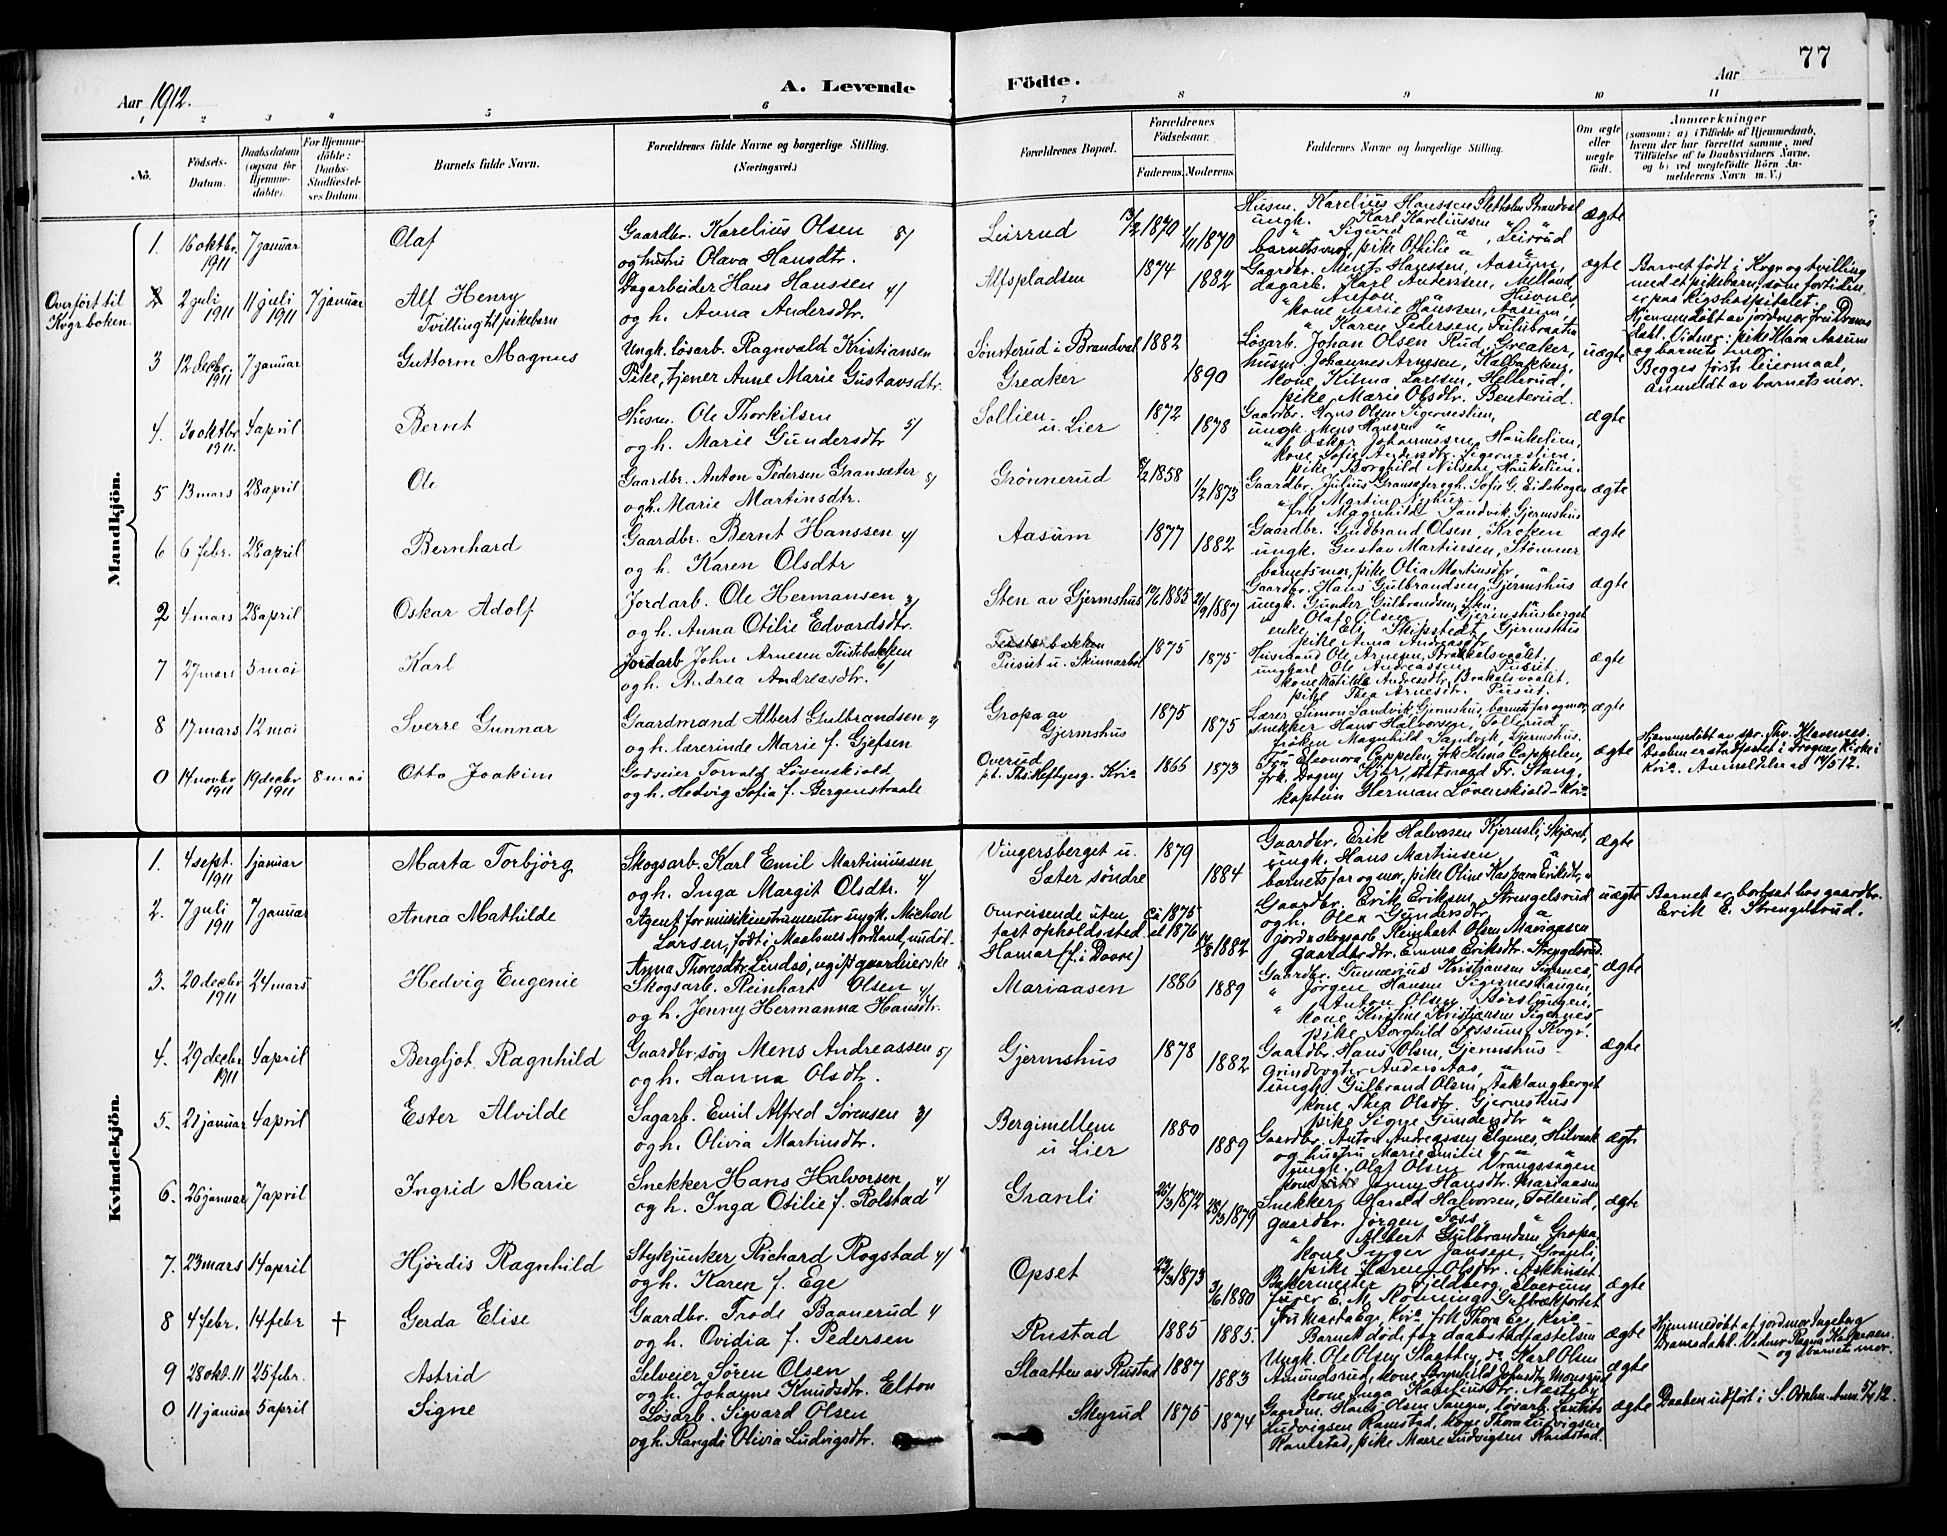 77
Aar 1912.
A. Levende
Födte.
Aar
1 2 3 4 5 6 7 8 9 10 11
No.
Födsels-
Datum.
Daabsdatum
(ogsaa for
Hjemme-
döbte).
For Hjemme-
döbte:
Daabs-
Stadfæstel-
ses Datum.
Barnets fulde Navn.
Forældrenes fulde Navne og borgerlige Stilling.
(Næringsvei.)
Forældrenes Bopæl.
Forældrenes
Födselsaar.
Faderens.
Moderens.
Faddernes Navne og borgerlige Stilling.
Om ægte
eller
uægte
födt.
Anmærkninger
(saasom: a) i Tilfælde af Hjemmedaab,
hvem der har forrettet samme, med
Tilföielse af to Daabsvidners Navne,
og b) ved uægtefödte Börn An-
melderens Navn m. V.)
Mandkjön.
1. 16 oktbr. 1911 7 januar Olaf
Gaardbr. Karelius Olsen 8/
og hustru Olava Hansdtr.
Leirrud 13/2 1870 1/11 1870
Husm. Karelius Hanssen Sletholm Brandval
ungk. Karl Kareliussen
" Sigurd " , Leirrud
barnetsmor, pike Othilie "
ægte
Overført til
Kvgr boken.
2 2 juli 1911 11 juli 1911 7 januar Alf Henry
Tvilling til pikebarn
Dagarbeider Hans Hanssen 4/
og h. Anna Andersdtr.
Alfspladsen 1874 1882
Gaardbr. Hanssen, Aasum,
dagarb. Karl Anderssen, Melland,
kone Marie Hanssen, Aasum,
" Karen Pedersen,
ægte
Barnet født i Kvgr og tvilling
med et pikebarn, som fortiden
er paa Rigshospitalet.
Hjemmedøbt av jordmor fru
Vidner: pike Klara Aasum
og barnets mor.
3 12 decbr. 1911 7 januar Guttorm Magnus
Ungk. løsarb. Ragnvald Kristiansen
Pike, tjener Anne Marie Gustavsdtr.
Sønsterud i Brandval 1882
Greaker 1890
Løsarb. Johan Olsen Rud, Greaker,
husm Johannes Arnesen, Kalbakken,
kone Kilma Larsen, Hellerud,
pike Marie Olsdtr. Benterud.
uægte
Begges første leiermaal,
anmeldt av barnets mor.
4. 30 oktbr 1911. 4 april Bernt
Husm. Ole Thorkilsen
og h. Marie Gundersdtr 5/
Sollien
u. Lier 1872 1878
Gaardbr. Hans Olsen Sigernestien,
ungk. Mens Hansen "
" Oskar Johannessen, Haukelien,
kone Sofie Andersdtr. Sigernestien,
pike Borghild Nilsen, Haukelien.
ægte
5 13 mars 28 april Ole
Gaardbr. Anton Pedersen Gransæter
og h. Marie Martinsdtr.
Grønnerud 1858 1/2 1873
Gaardbr. Julius Gransæter og h. Sofie G. Eidskogen
" Martin Nyhus
frk Magnhild Sandvik, Gjermshus
ægte
6 6 febr. 28 april Bernhard
Gaardbr. Bernt Hanssen 4/
og h. Karen Olsdtr
Aasum 1877 1882
Gaardbr. Gudbrand Olsen, Kroken
ungk. Gustav Martinsen, Stømner
barnets mor, pike Olia Martinsdtr. "
ægte
2 4 mars 28 april Oskar Adolf
Jordarb. Ole Hermansen 3/
og h. Anna Otilie Edvardsdtr.
Sten av Gjermshus 1885 1887
Gaardbr. Hans Gulbrandsen, Gjermshus
ungk. Gunder Gulbrandsen, Sten,
" Olaf Olsen, Gjermshusberget
enke Eli Skipstedt, Gjermshus
pike Anna Andreasdtr.
ægte
7 27 mars 5 mai Karl
Jordarb John Arnesen Teistbakken
og h. Andrea Andreasdtr. 6/
Teistebakken
Pusut u. Skinnarbøl 1875 1875
Husmand Ole Arnesen, Brakalsvaalet,
ungkarl Ole Andreassen, Pusut.
kone Matilde Andreasdtr, Brakalsvaalet.
pike Thea Arnesdtr. Pusut.
ægte
8 17 mars 12 mai Sverre Gunnar
Gaardmand Albert Gulbrandsen 2/
og h. lærerinde Marie f. Gjefsen
Gropa av
Gjermshus 1875 1875
Lærer Simon Sandvik, Gjermshus, barnets far og mor,
snekker Hans Halvorsen, Tollerud
frøken Magnhild Sandvik, Gjermshus.
ægte
0 14 novbr 1911 19 decbr 1911 8 mai Otto Joakim
Godseier Torvald Løvenskiold
og h. Hedvig Sofia f. Bergenstraale
Overud
pt. Thi Heftyesg. Kria 1866 1873
Fru Eleonora Cappelen, frk Selma Cappelen,
frk. Dagny Kjær, statsraad Fr. Stang,
kaptein Herman Løvenskiold - Kria
ægte
Hjemmedøbt av spr. Thv. Klaveness.
Daaben er stadfæstet i Frogner Kirke i
Kria. Anmeldelse ad 14/5 12.
Kvindekjön.
1. 4 sept. 1911 1 januar Marta Torbjörg
Skogsarb. Karl Emil Martiniussen
og h. Inga Margit Olsdtr. 4/
Vingersberget u.
Sæter søndre 1879 1884
Gaardbr. Erik Halvorsen Kjernsli, Skjæret,
ungk. Hans Martinsen, "
barnets far og mor, pike Oline Kaspara Eriksdtr, "
ægte
2. 7 juli 1911 7 januar Anna Mathilde
Agent for musikinstrumenter ungk. Michael
Larsen, født i Maalsnes Nordland, undøl-
Anna Thoresdtr Lindsø, ugift gaardeierske
Omreisende uten
fast opholdssted
Hamar (f. i Dovre) Ca 1875 el 1876 1882
Gaardbr. Erik Eriksen, Strengelsrud
og h. Olea Gundersdtr "
jord n skogsarb Reinhart Olsen Mariaasen
gaardbrdtr. Emma Eriksdtr. Strengelsrud
uægte
Barnet er bortsat hos gaardbr.
Erik E. Strengelsrud.
3. 20 decbr 1911 24 mars Hedvig Eugenie
Skogsarb. Reinhart Olsen 4/
og h. Jenny Hermanna Hansdtr.
Mariaasen 1886 1889
Gaardbr. Gunnerius Kristiansen Sigernes,
" Jørgen Hansen Sigerneshaugen,
" Anton Olsen,
kone Kristine Kristiansen Sigernes
pike Borghild Fossum, Kvgr.
ægte
4. 29 decbr 1911 4 april Bergljot Ragnhild
Gaardbr. søn Mens Andreassen 5/
og h. Hanna Olsdtr.
Gjermshus 1878 1882
Gaardbr. Hans Olsen, Gjermshus
Grindvogter Anders Aas, "
ungk. Gulbrand Olsen,
kone Thea Olsdtr. Gjermshus
pike Signe Gundersdtr "
ægte
5. 21 januar 4 april Ester Alvilde
Sagarb. Emil Alfred Sørensen 3/
og h. Olivia Martinsdtr.
Bergimellem
u Lier 1880 1889
Gaardbr. Anton Andreassen Elgenes,
og hustru Marie Emilie " "
ungk. Olaf Olsen Vrangssagen
kone Jenny Hansdtr. Mariaasen
ægte
6. 26 januar 7 april Ingrid Marie
Snekker Hans Halvorsen 4/
og h. Inga Otilie f. Rolstad
Granli 25/3 1872 28/3 1879
Snekker Harald Halvorsen, Tollerud,
gaardbr. Jørgen Foss, "
" Albert Gulbrandsen, Gropa,
kone Inger Jansen, Granli,
pike Karen Olsdtr. Askhuset
ægte
7. 23 mars 14 april Hjørdis Ragnhild
Stykjunker Richard Rogstad 4/
og h. Karen f. Ege
Opset 1873 3/6 1880
Bakermester Fjeldberg, Elverum,
furer E. M. Rønning, Gulbækfortet
fru Marta Ege, Kria, frk Thora Ege, Kria
ægte
8 4 febr. 14 febr † Gerda Elise
Gaardbr. Frode Baanerud 4/
og h. Ovidia f. Pedersen
Rustad 1885 1885
Barnet døde før daabstadfæstelsen
ægte
Hjemmedøbt af jordmor Ingeborg
Dramsdahl. Vidner: Ragna Kaspersen
og barnets mor.
9 28 okt. 11 25 febr. Astrid
Selveier Søren Olsen
og h. Johanne Knudsdtr. Elton
Slaatten av Rustad 1887 1883
Ungk. Ole Olsen Slaatten, do Karl Olsen
Amundsrud,
kone Inga
ægte
0 11 januar 5 april Signe
Løsarb. Sigvard Olsen
og h. Rangdi Olivia Ludvigsdtr.
Skyrud 1875 1874
Gaardm. Hans Olsen Tangen, løsarb. Laurits
Ludvigsen Ramstad, kone Thora Ludvigsen
Ramstad, pike Marie Ludvigsen Ramstad.
ægte
Daaben utført i S. Odalen. Anm. 5/4 12.